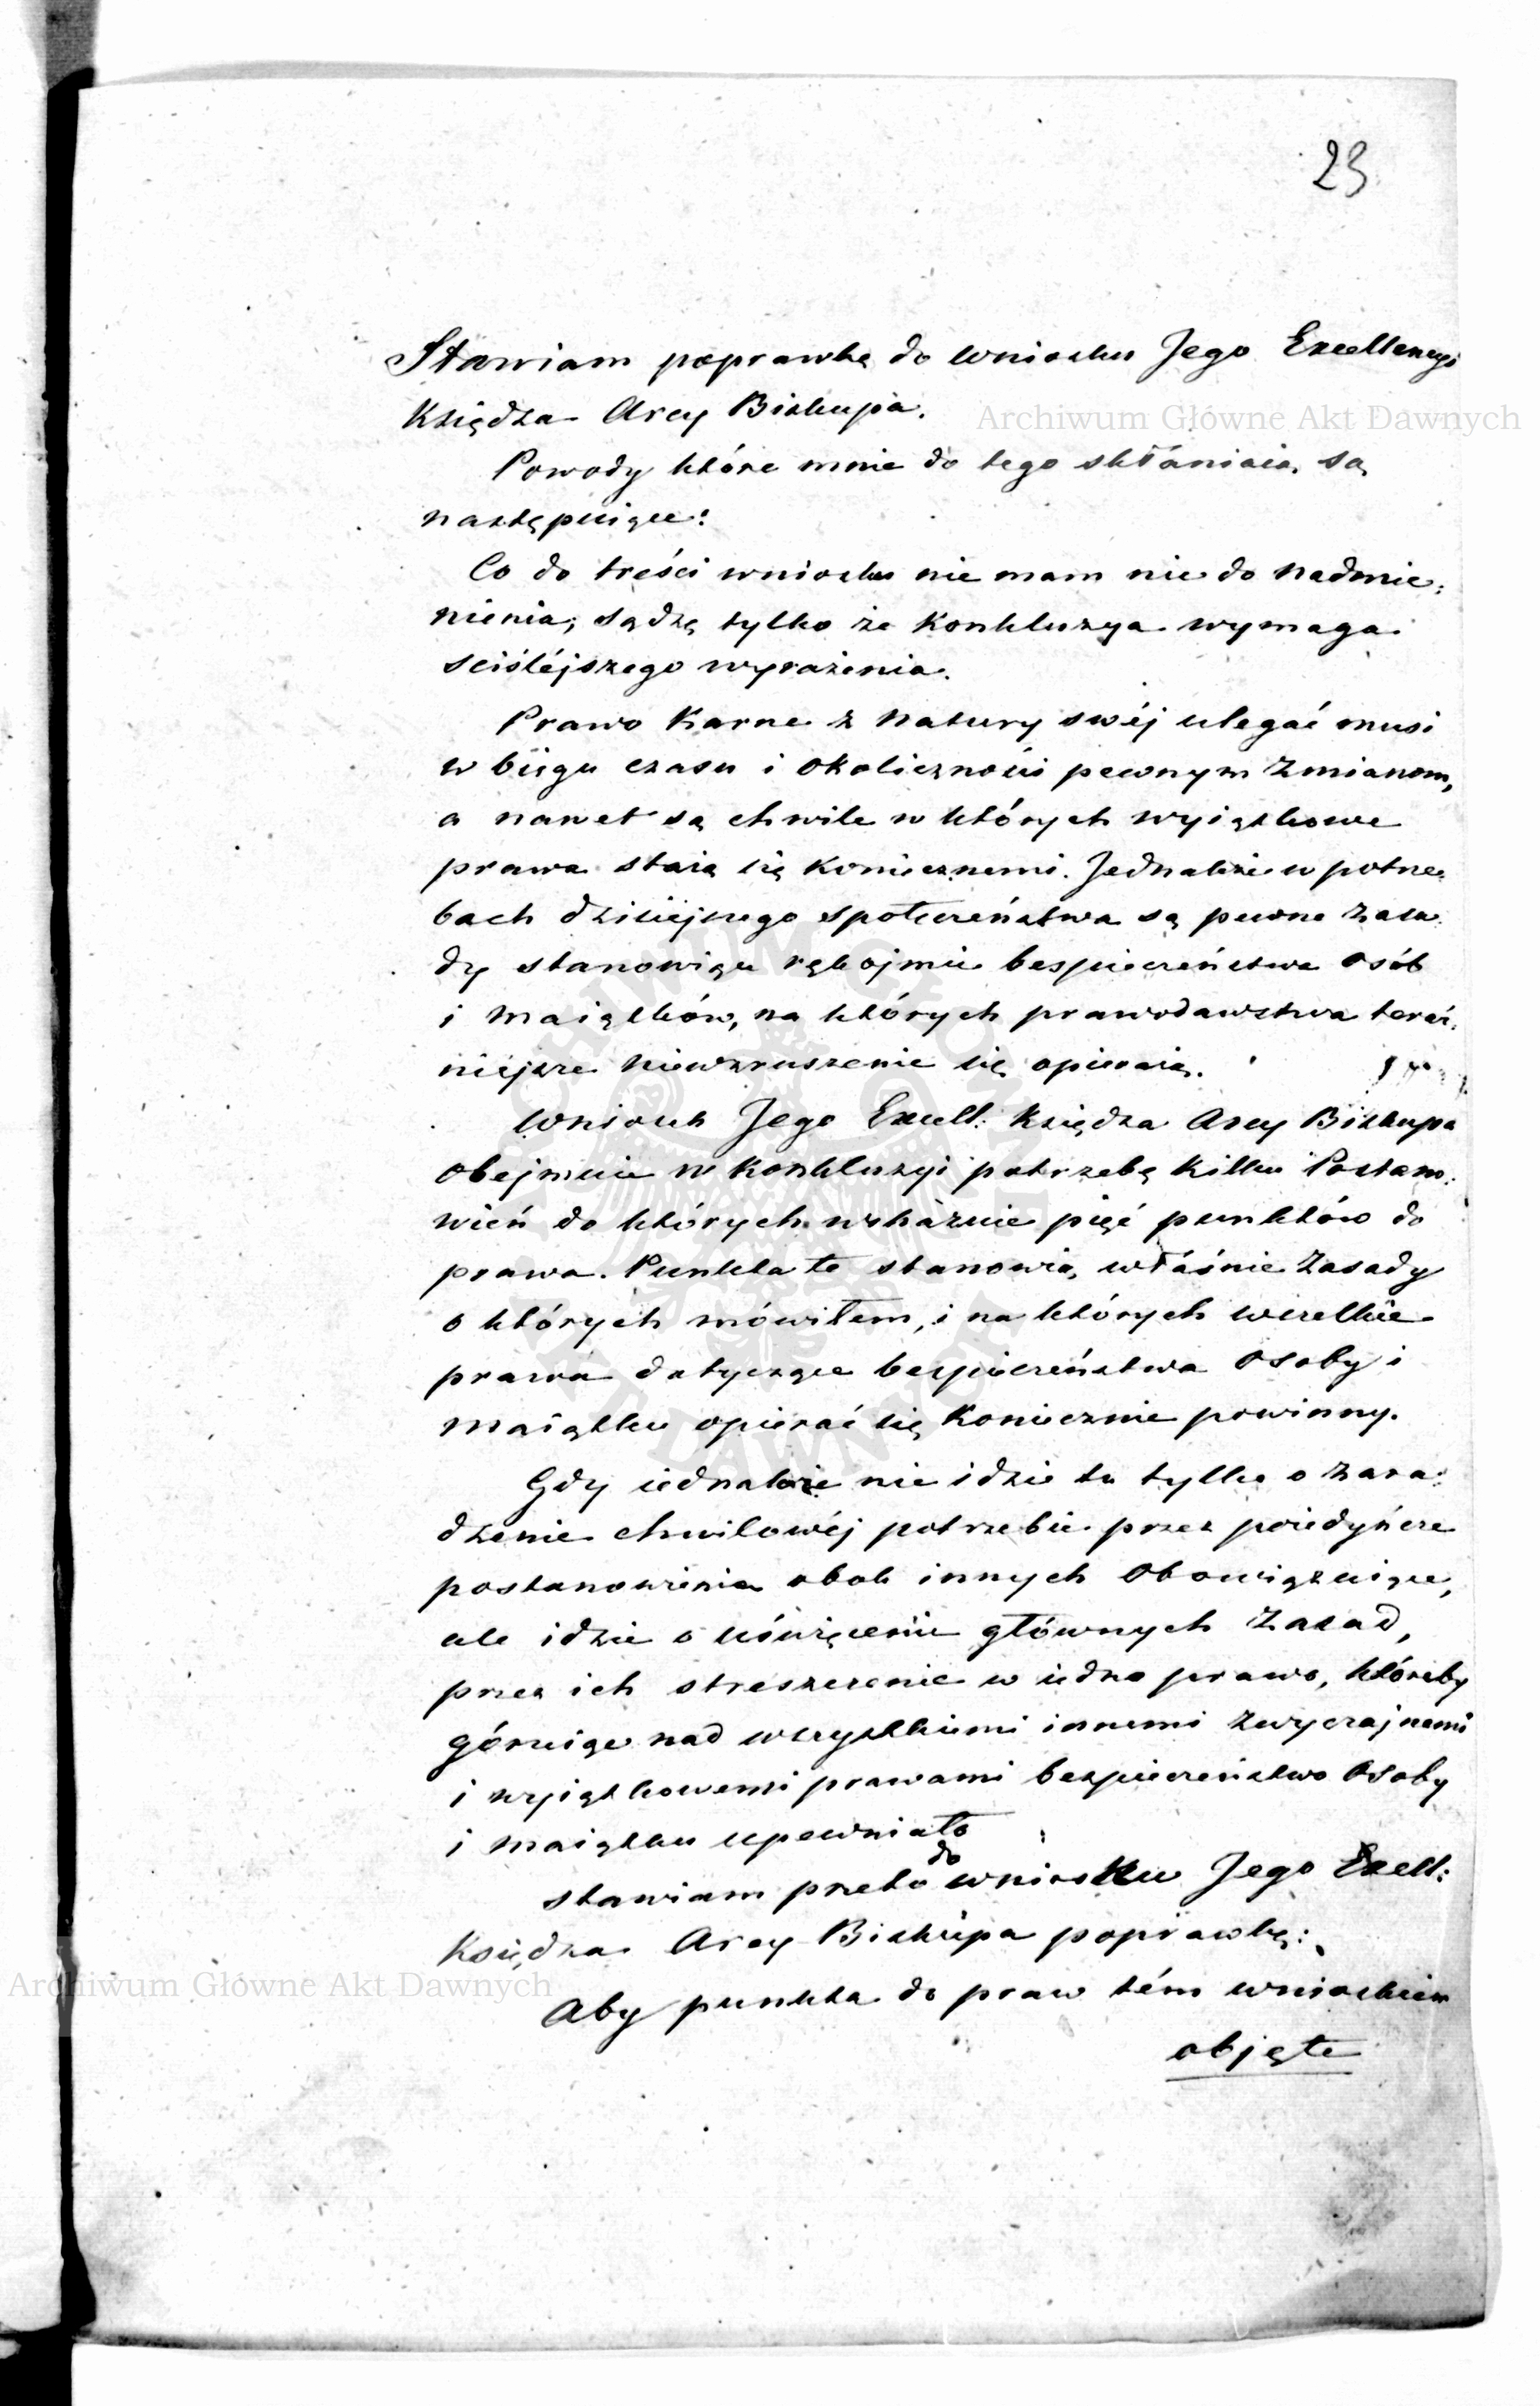 23
Stawiam poprawkę do wniosku Jego Excellencyi
Księdza Arcy Biskupa.
Archiwum Główne Akt Dawnych
Powody które mnie do tego skłaniaią, są
następuiące:
Co do treści wniosku nie mam nic do nadmie:
nienia; sądzę tylko że Konkluzya wymaga
sciślejszego wyrażenia.
Prawo Karne z natury swéj ulegać musi
w biegu czasu i okoliczności pewnym zmianom,
a nawet są chwile w których wyiątkowe
prawa staią się koniecznemi. Jednakże w potrze:
bach dzisiejszego społeczeństwa są pewne zasa:
dy stanowiące rękojmie bespieczeństwa osób
i maiątków, na których prawodawstwa teraź:
niejsze niewzruszenie się opieraią.
Wniosek Jego Excell: Księdza Arcy Biskupa
obejmuie w konkluzyi potrzebę kilku Postano:
wień do których wskazuie pięć punktów do
prawa. Punkta te stanowią, właśnie zasady
o których mówiłem, i na których wszelkie
prawa dotyczące bespieczeństwa osoby i
maiątku opierać się koniecznie powinny.
Gdy iednakże nie idzie tu tylko o zara:
dzenie chwilowéj potrzebie przez poiedyńcze
postanowienia obok innych obowiązuiące,
ale idzie o uświęcenie głównych zasad,
przez ich streszczenie w iedno prawo, któreby
góruiąc nad wszystkiemi innemi zwyczajnemi
i wyiątkowemi prawami bezpieczeństwo osoby
i maiątku upewniało
stawiam przeto do wniosku Jego Excell:
Księdza Arcy Biskupa poprawkę:
Archiwum Główne Akt Dawnych
Aby punkta do praw tém wnioskiem
objęte